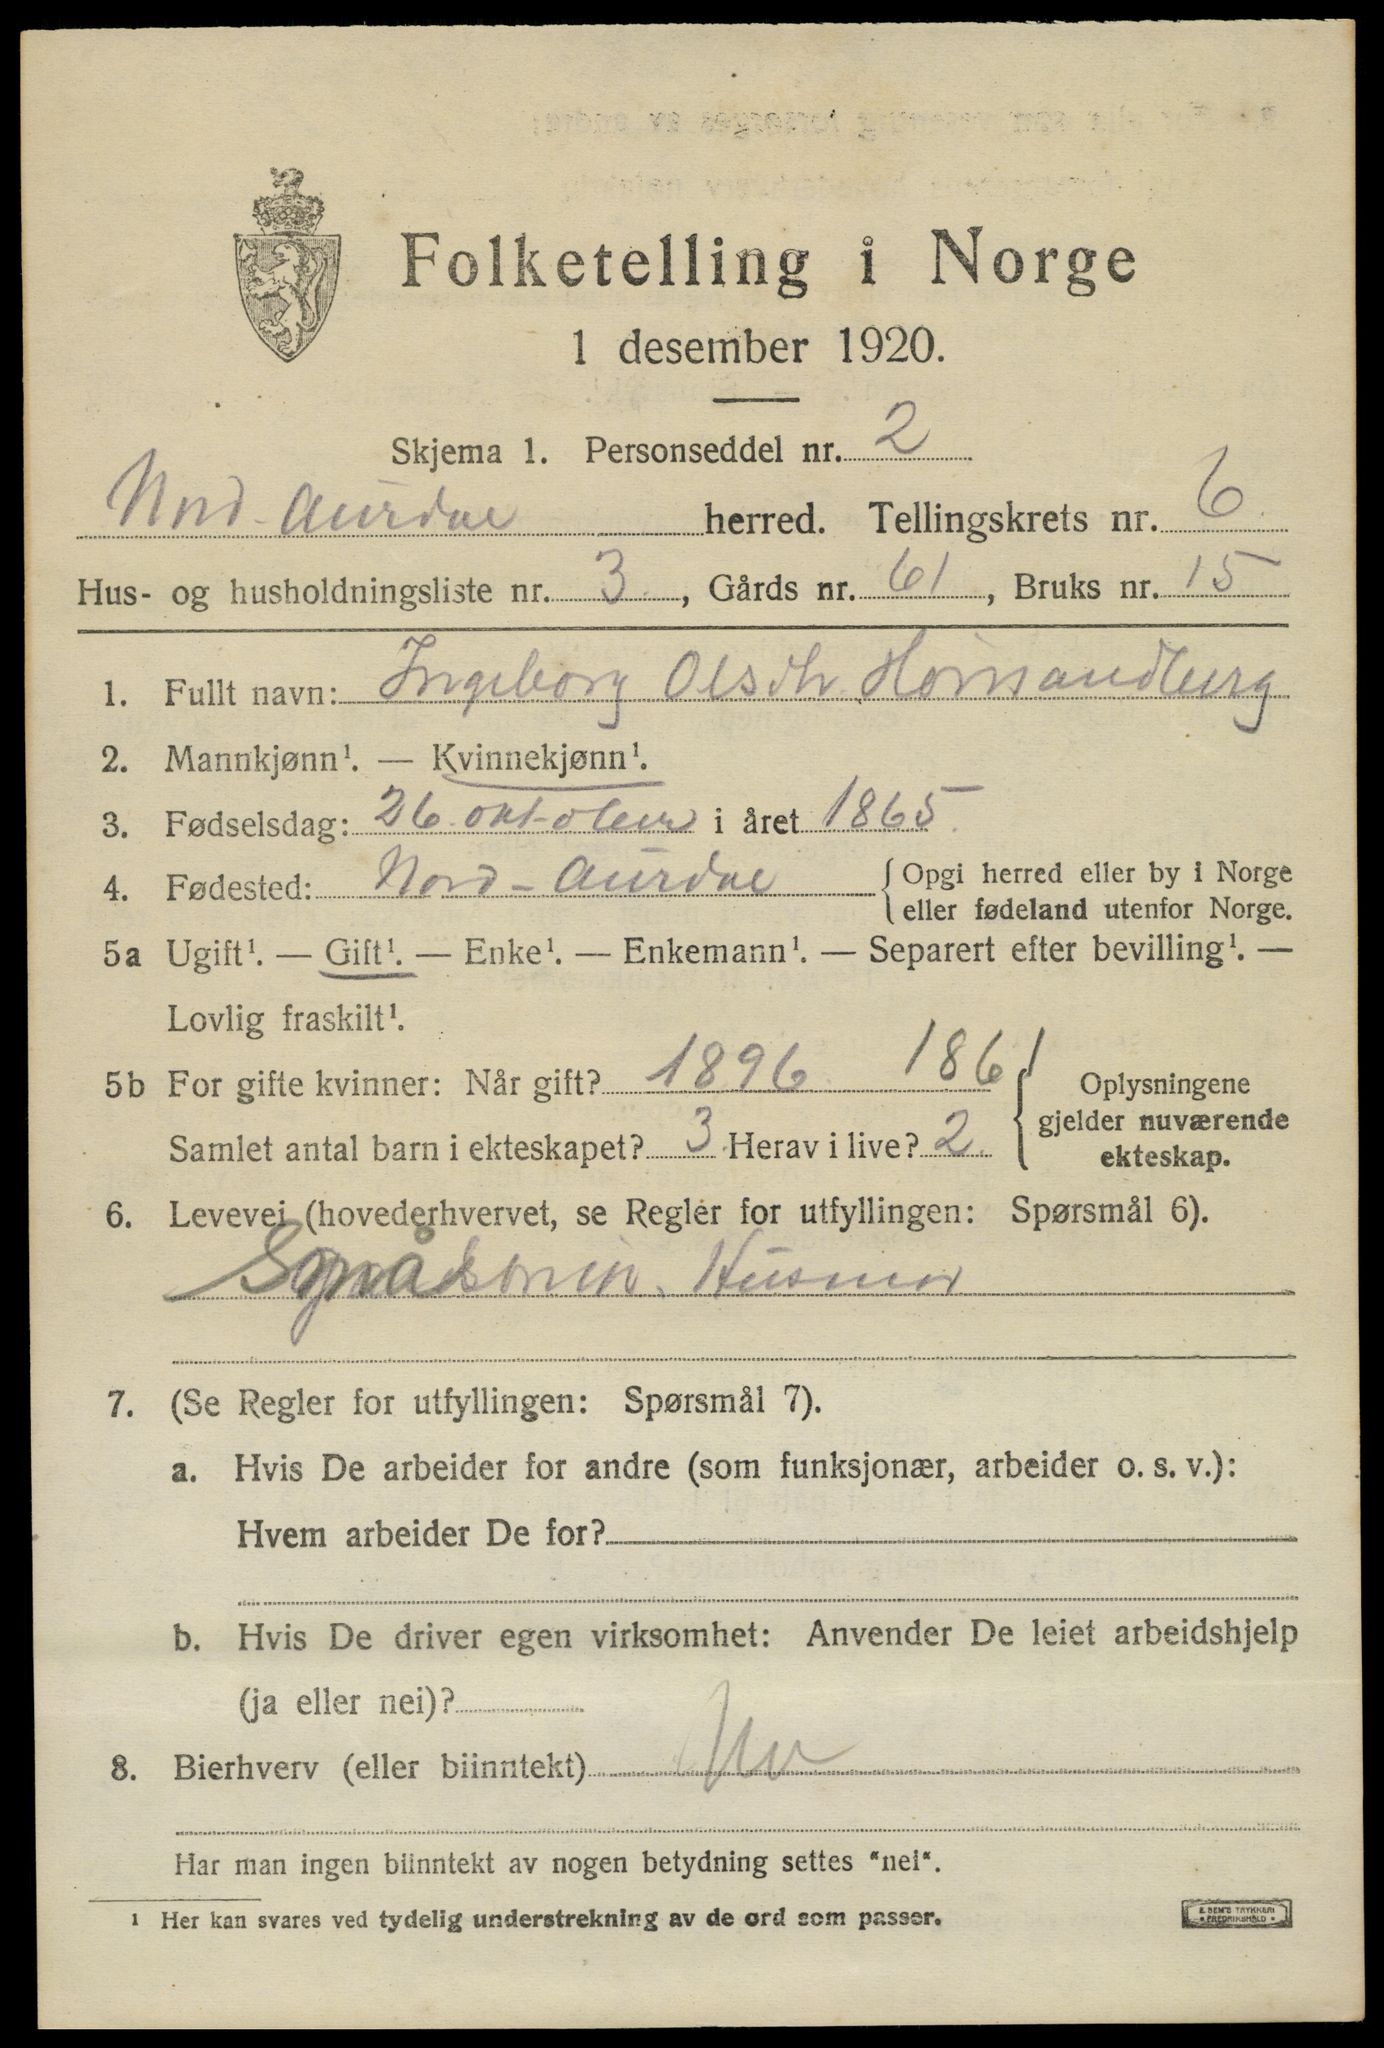 Folketelling i Norge
1 desember 1920.
Skjema 1. Personseddel nr. 2
Nord-Aurdal herred. Tellingskrets nr. 6
Hus- og husholdningsliste nr. 3, Gårds nr. 61, Bruks nr. 15
1. Fullt navn: Ingeborg Olsdtr.
2. Mannkjønn¹. — Kvinnekjønn¹.
3. Fødselsdag: 26 oktober i året 1865
4. Fødested: Nord-Aurdal {Opgi herred eller by i Norge
eller fødeland utenfor Norge.
5a Ugift¹. — Gift¹. — Enke¹. — Enkemann¹. — Separert efter bevilling¹. —
Lovlig fraskilt¹.
5b For gifte kvinner: Når gift? 1896 1861 { Oplysningene
gjelder nuværende
Samlet antal barn i ekteskapet? 3 Herav i live? 2
ekteskap.
6. Levevei (hovederhvervet, se Regler for utfyllingen: Spørsmål 6).
Husmor
7. (Se Regler for utfyllingen: Spørsmål 7).
a. Hvis De arbeider for andre (som funksjonær, arbeider o. s. v.):
Hvem arbeider De for?
b. Hvis De driver egen virksomhet: Anvender De leiet arbeidshjelp
(ja eller nei)?
8. Bierhverv (eller biinntekt)
Har man ingen biinntekt av nogen betydning settes "nei".
¹ Her kan svares ved tydelig understrekning av de ord som passer.
E. SEM'S TRYKKERI
FREDRIKSHALD